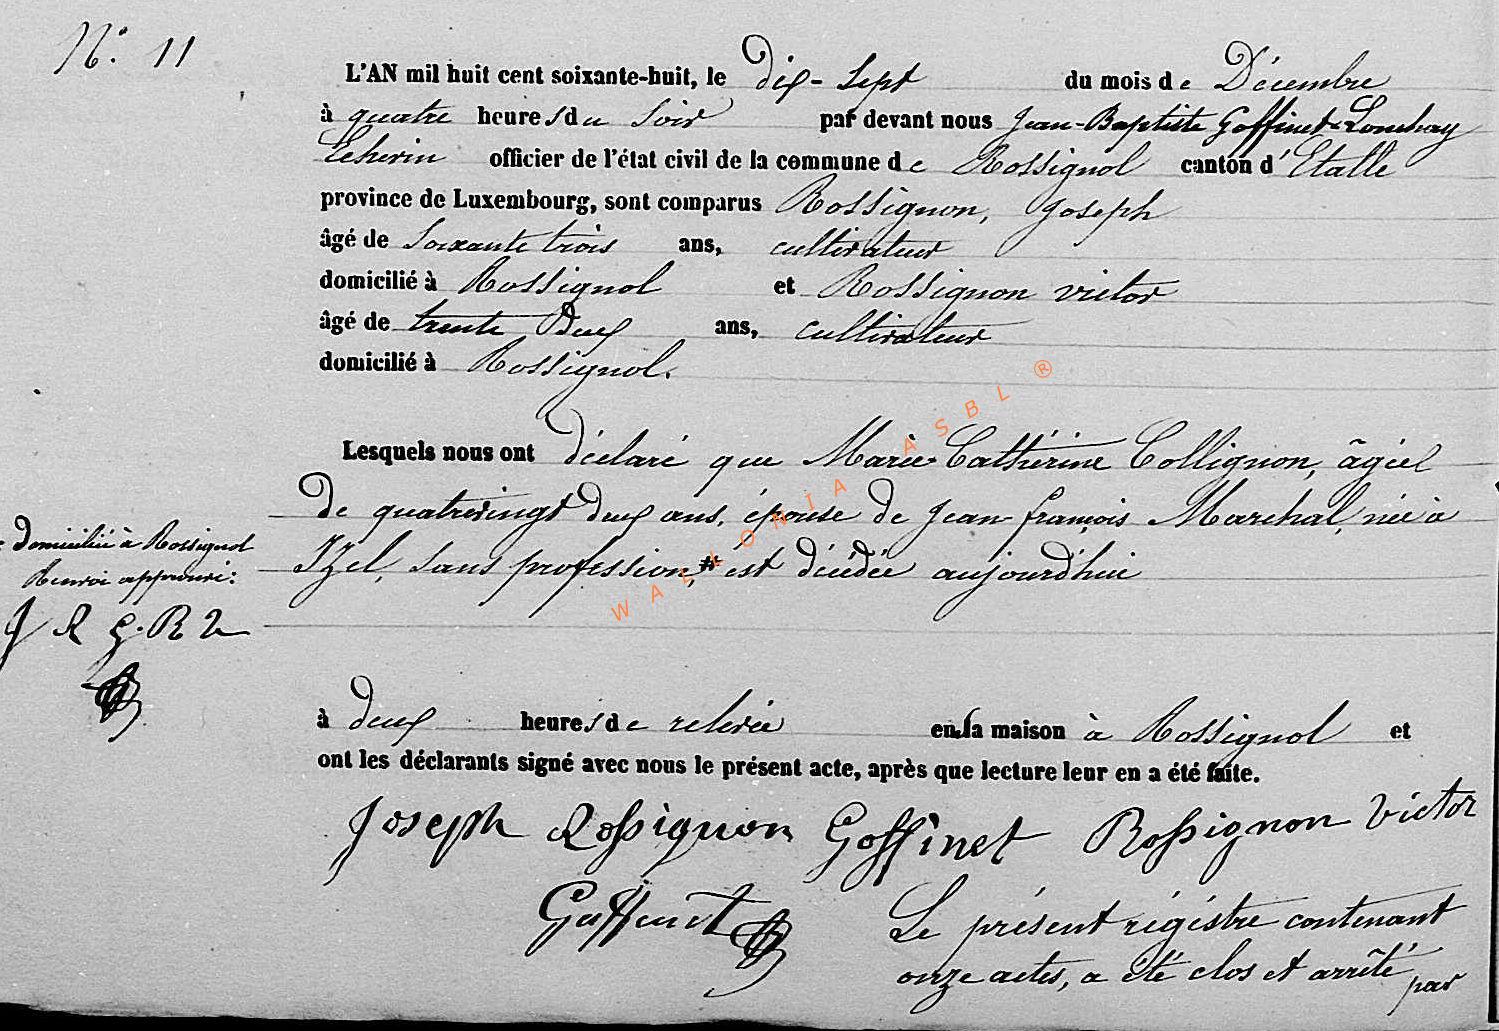 N° 11
L'AN mil huit cent soixante-huit, le dix-sept du mois de Décembre
à quatre heures du soir par devant nous Jean-Baptiste Goffinet
Echevin officier de l'état civil de la commune de Rossignol canton d'Etalle
province de Luxembourg, sont comparus Rossignon, Joseph
âgé de soixante trois ans, cultivateur
domicilié à Rossignol et Rossignon victor
âgé de trente deux ans, cultivateur
domicilié à Rossignol.
Lesquels nous ont déclaré que Marie Cathérine Collignon, âgée
de quatrevingt deux ans, épouse de Jean françois Marechal, née à
Izel, sans profession, # est décédée aujourd'hui
domiciliée à Rossignol
Renvoi approuvé:
J R G. R V
à deux heures de relevée en sa maison à Rossignol et
ont les déclarants signé avec nous le présent acte, après que lecture leur en a été faite.
Joseph Rossignon Goffinet Rossignon Victor
Goffinet
Le présent régistre contenant
onze actes, a été clos et arrêté par
WALLONIA ASBL ®